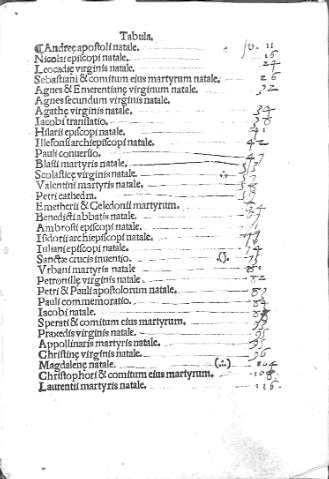 Tabula.
¶ Andreę apostoli natale. fo. 11
Nicolai episcopi natale. 16
Leocadię virginis natale. 24
Sebastiani & comitum eius martyrum natale. 26
Agnes & Emerentianę virginum natale. 32
Agnes secundum virginis natale.
Agathę virginis natale. 34
Iacobi translatio. 38
Hilarii episcopi natale. 41
Illefonsi archiepiscopi natale. 42
Pauli conuersio.
Blasii martyris natale. 47
Scolasticę virginis natale.
Valentini martyris natale.
Petri cathedra.
Emetherii & Celedonii martyrum.
Benedicti abbatis natale.
Ambrosii episcopi natale.
Isidorii archiepiscopi natale.
Iuliani episcopi natale.
Sanctæ crucis inuentio.
Vrbani martyris natale
Petronillę virginis natale. 82
Petri & Pauli apostolorum natale. 83
Pauli commemoratio.
Iacobi natale.
Sperati & comitum eius martyrum.
Praxedis virginis natale.
Appollinaris martyris natale.
Christinę virginis natale. 96
Magdalenę natale. 104
Christophori & comitum eius martyrum. 108
Laurentii martyris natale. 116